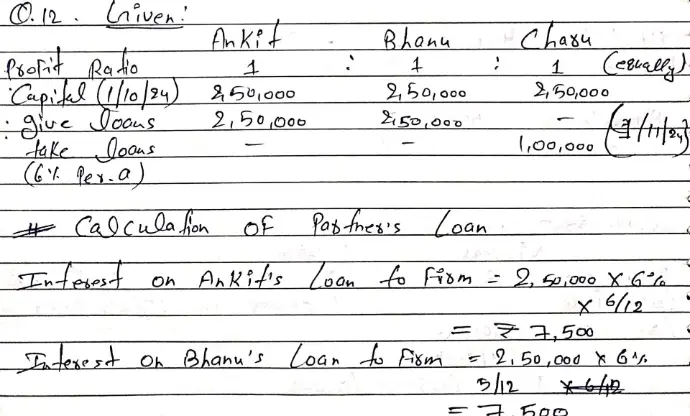 Q.12. Given:
Ankit Bhanu Charu
Profit Ratio 1 : 1 : 1 (equally)
Capital (1/10/24) 2,50,000 2,50,000 2,50,000
: give loans 2,50,000 2,50,000 –
take loans – – 1,00,000 (1/11/24)
(6% Per.a)
# Calculation OF Partner's Loan
Interest on Ankit's Loan to Firm = 2,50,000 X 6%
X 6/12
= ₹ 7,500
Interest on Bhanu's Loan to Firm = 2,50,000 X 6%
5/12 X 6/12
= 7,500